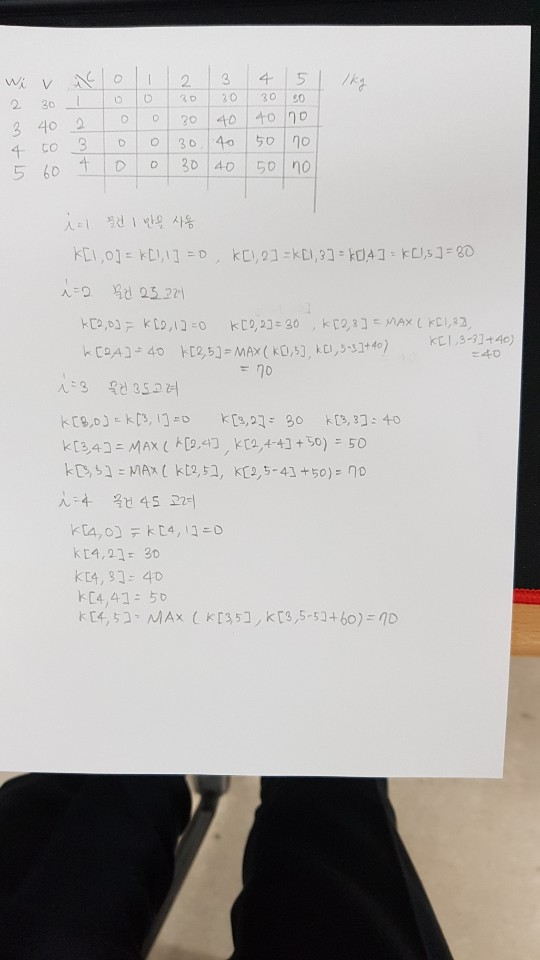 Wi V i\C 0 1 2 3 4 5 /kg
2 30 1 0 0 30 30 30 30
3 40 2 0 0 30 40 40 70
4 50 3 0 0 30 40 50 70
5 60 4 0 0 30 40 50 70
i=1 물건 1 만을 사용
K[1,0]=K[1,1]=0, K[1,2]=K[1,3]=K[1,4]=K[1,5]=30
i=2 물건 2도 고려
K[2,0]=K[2,1]=0 K[2,2]=30, K[2,3]=MAX(K[1,3],
K[1,3-3]+40)
K[2,4]=40 K[2,5]=MAX(K[1,5], K[1,5-3]+40)
=40
=70
i=3 물건 3도 고려
K[3,0]=K[3,1]=0 K[3,2]=30 K[3,3]=40
K[3,4]=MAX(K[2,4], K[2,4-4]+50)=50
K[3,5]=MAX(K[2,5], K[2,5-4]+50)=70
i=4 물건 4도 고려
K[4,0]=K[4,1]=0
K[4,2]=30
K[4,3]=40
K[4,4]=50
K[4,5]=MAX(K[3,5], K[3,5-5]+60)=70